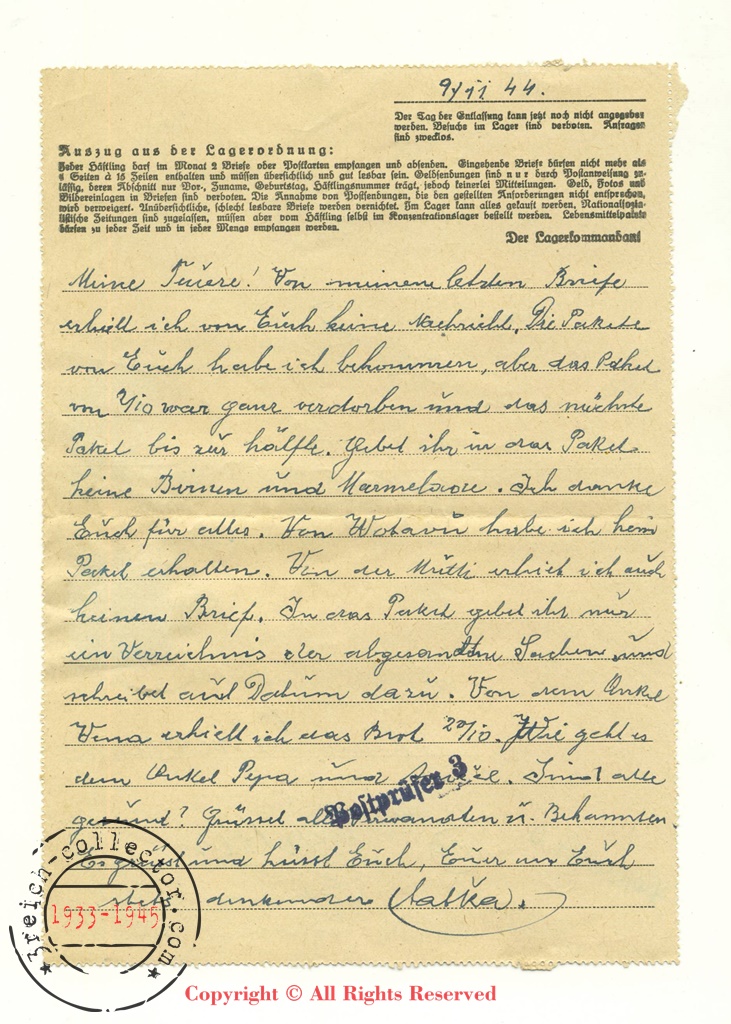 9/XI 44.
Der Tag der Entlassung kann jetzt noch nicht angegeben
werden. Besuche im Lager sind verboten. Anfragen
sind zwecklos.
Auszug aus der Lagerordnung:
Jeder Häftling darf im Monat 2 Briefe oder Postkarten empfangen und absenden. Eingehende Briefe dürfen nicht mehr als
4 Seiten à 15 Zeilen enthalten und müssen übersichtlich und gut lesbar sein. Geldsendungen sind nur durch Postanweisung zu-
lässig, deren Abschnitt nur Vor-, Zuname, Geburtstag, Häftlingsnummer trägt, jedoch keinerlei Mitteilungen. Geld, Fotos und
Bildereinlagen in Briefen sind verboten. Die Annahme von Postsendungen, die den gestellten Anforderungen nicht entsprechen,
wird verweigert. Unübersichtliche, schlecht lesbare Briefe werden vernichtet. Im Lager kann alles gekauft werden. Nationalsozia-
listische Zeitungen sind zugelassen, müssen aber vom Häftling selbst im Konzentrationslager bestellt werden. Lebensmittelpakete
dürfen zu jeder Zeit und in jeder Menge empfangen werden.
Der Lagerkommandant
Meine Teuere! Von meinem letzten Briefe
erhielt ich von Euch keine Nachricht. Die Pakete
von Euch habe ich bekommen, aber das Paket
von 7/10 war ganz verdorben und das nächste
Paket bis zur hälfte. Gebet ihr in das Paket
keine Birnen und Marmelade. Ich danke
Euch für alles. Von Wotavů habe ich kein
Paket erhalten. Von der Mutti erhielt ich auch
keinen Brief. In das Paket gebet ihr nur
ein Verzeichnis der abgesandten Sachen und
schreibet auch Datum dazu. Von dem Onkel
Vena erhielt ich das Brot 20/10. Wie geht es
dem Onkel Pepa und. Sind alle
gesund? Grüsset alle Verwandten u. Bekannten.
Es grüsst und küsst Euch, Euer an Euch
stets denkender Laťka.
Postprüfer 3
3reich-collector.com
1933-1945
Copyright © All Rights Reserved